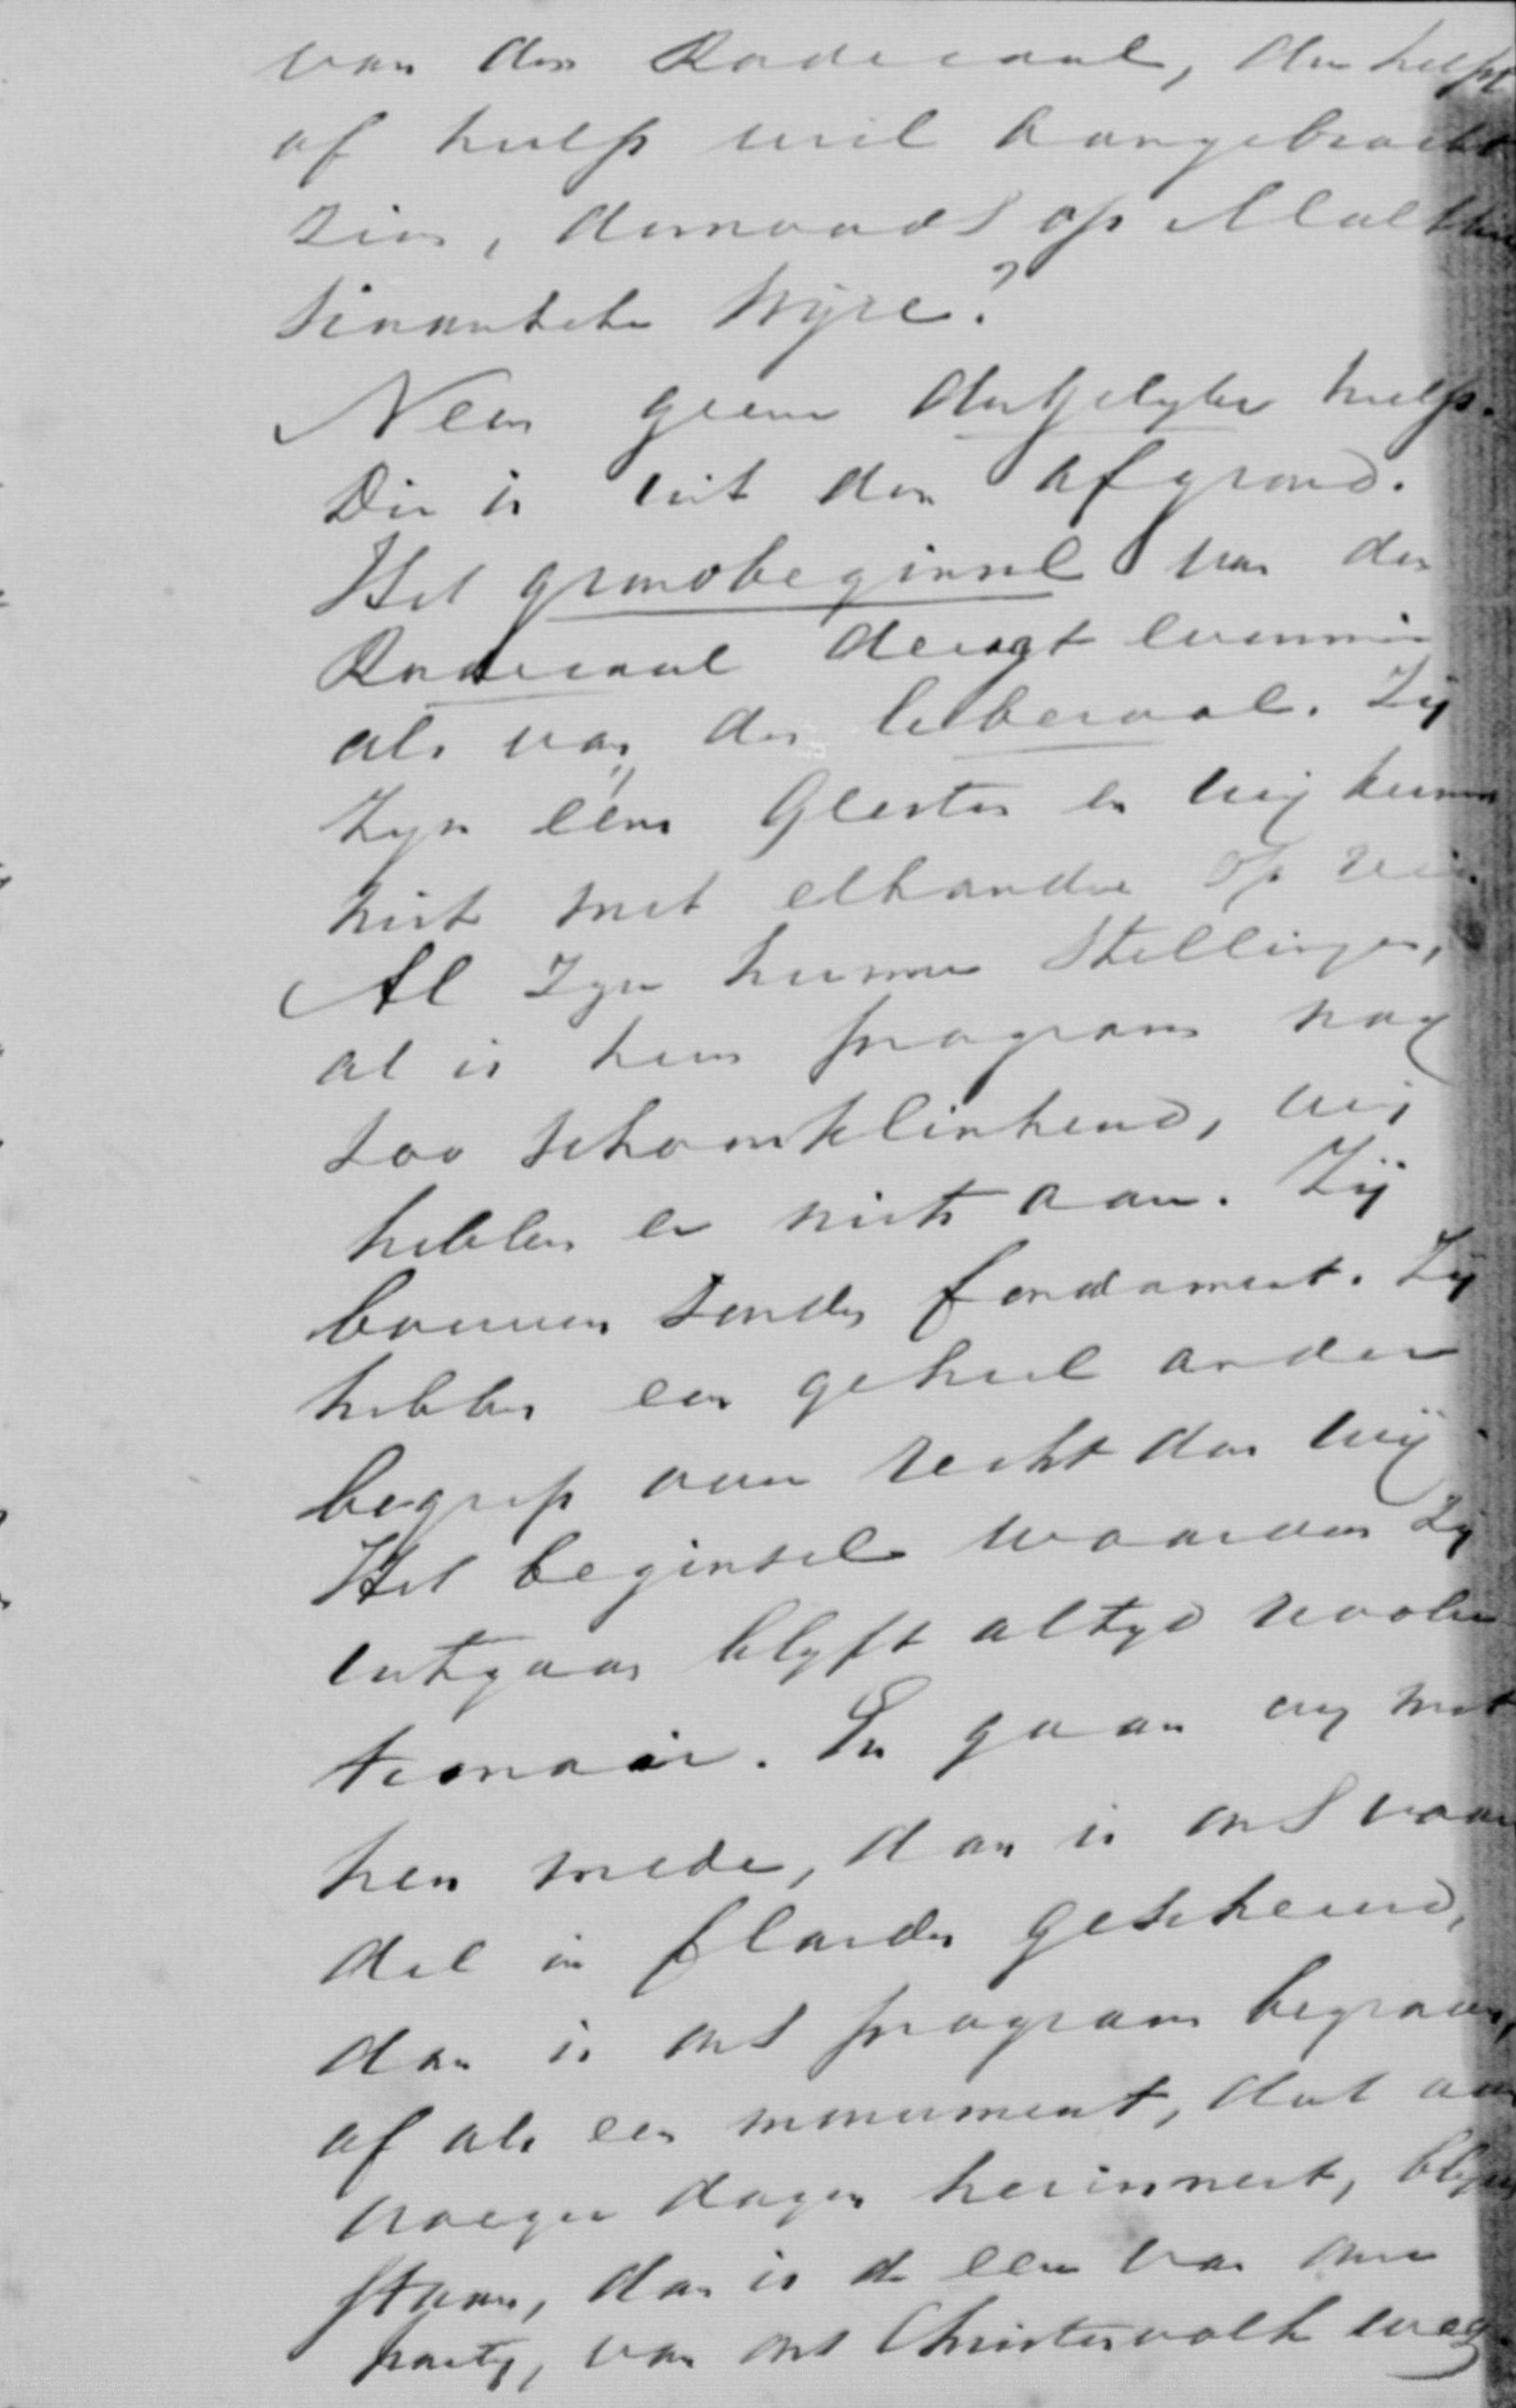 van den Radicaal, die hulp
of hulp wil aangebracht
zien, domaals op Malthu
siaansche wijze?
Neen geene dergelyke hulp.
Die is uit den afgrond.
Het grondbeginsel van den
Radicaal deugt evenmin
als van den liberaal. Zij
zyn ééns Geestes en wij kunnen
niet met elkander op reis.
Al zyn hunne stellingen,
al is hun program nog
zoo schoonklinkend, wij
hebben er niets aan. Zij
bouwen zonder fondament. Zij
hebben een geheel ander
begrip van recht dan wij
Het beginsel waarvan zij
uitgaan blyft altyd revolu
tionair. En gaan wij met
hen mede, dan is ons vaan
del in flarden gescheurd,
dan is ons program begraven,
of als een monument, dat aan
vroeger dagen herinnert, blyven
staan, dan is de eer van onze
party, van ons Christenvolk weg